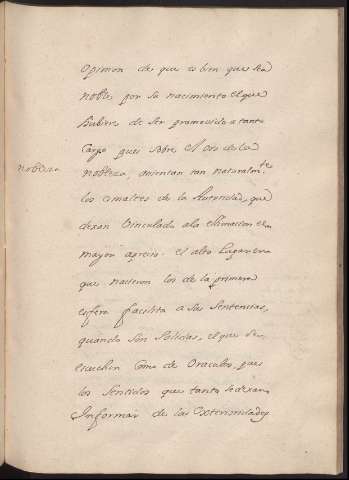 opinion de que es bien que sea
noble por su nacimiento el que
hubiere de ser promovido a tanto
Cargo pues sobre el oro de la
nobleza
nobleza, asientan tan naturalmte
los esmaltes de la Autoridad, que
dexan vinculado ala estimacion el
mayor aprecio. el alto Lugar en
que nacieron los de la primera
esfera facilita a sus Sentencias,
quando son Solidas, el que se
escuchen como de Oraculos, pues
los Sentidos que tanto se dexan
Informar de las exterioridades